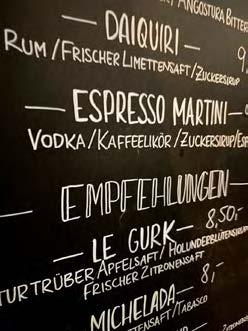 ANGOSTURA BITTER
— DAIQUIRI —
9,
RUM/FRISCHER LIMETTENSAFT/ZUCKERSIRUP
— ESPRESSO MARTINI —
VODKA/KAFFEELIKÖR/ZUCKERSIRUP/ESP
EMPFEHLUNGEN
— LE GURK — 8,50,-
TURTRÜBER APFELSAFT/HOLUNDERBLÜTENSIRUP
FRISCHER ZITRONENSAFT
MICHELADA— 8,-
TTENSAFT/TABASCO